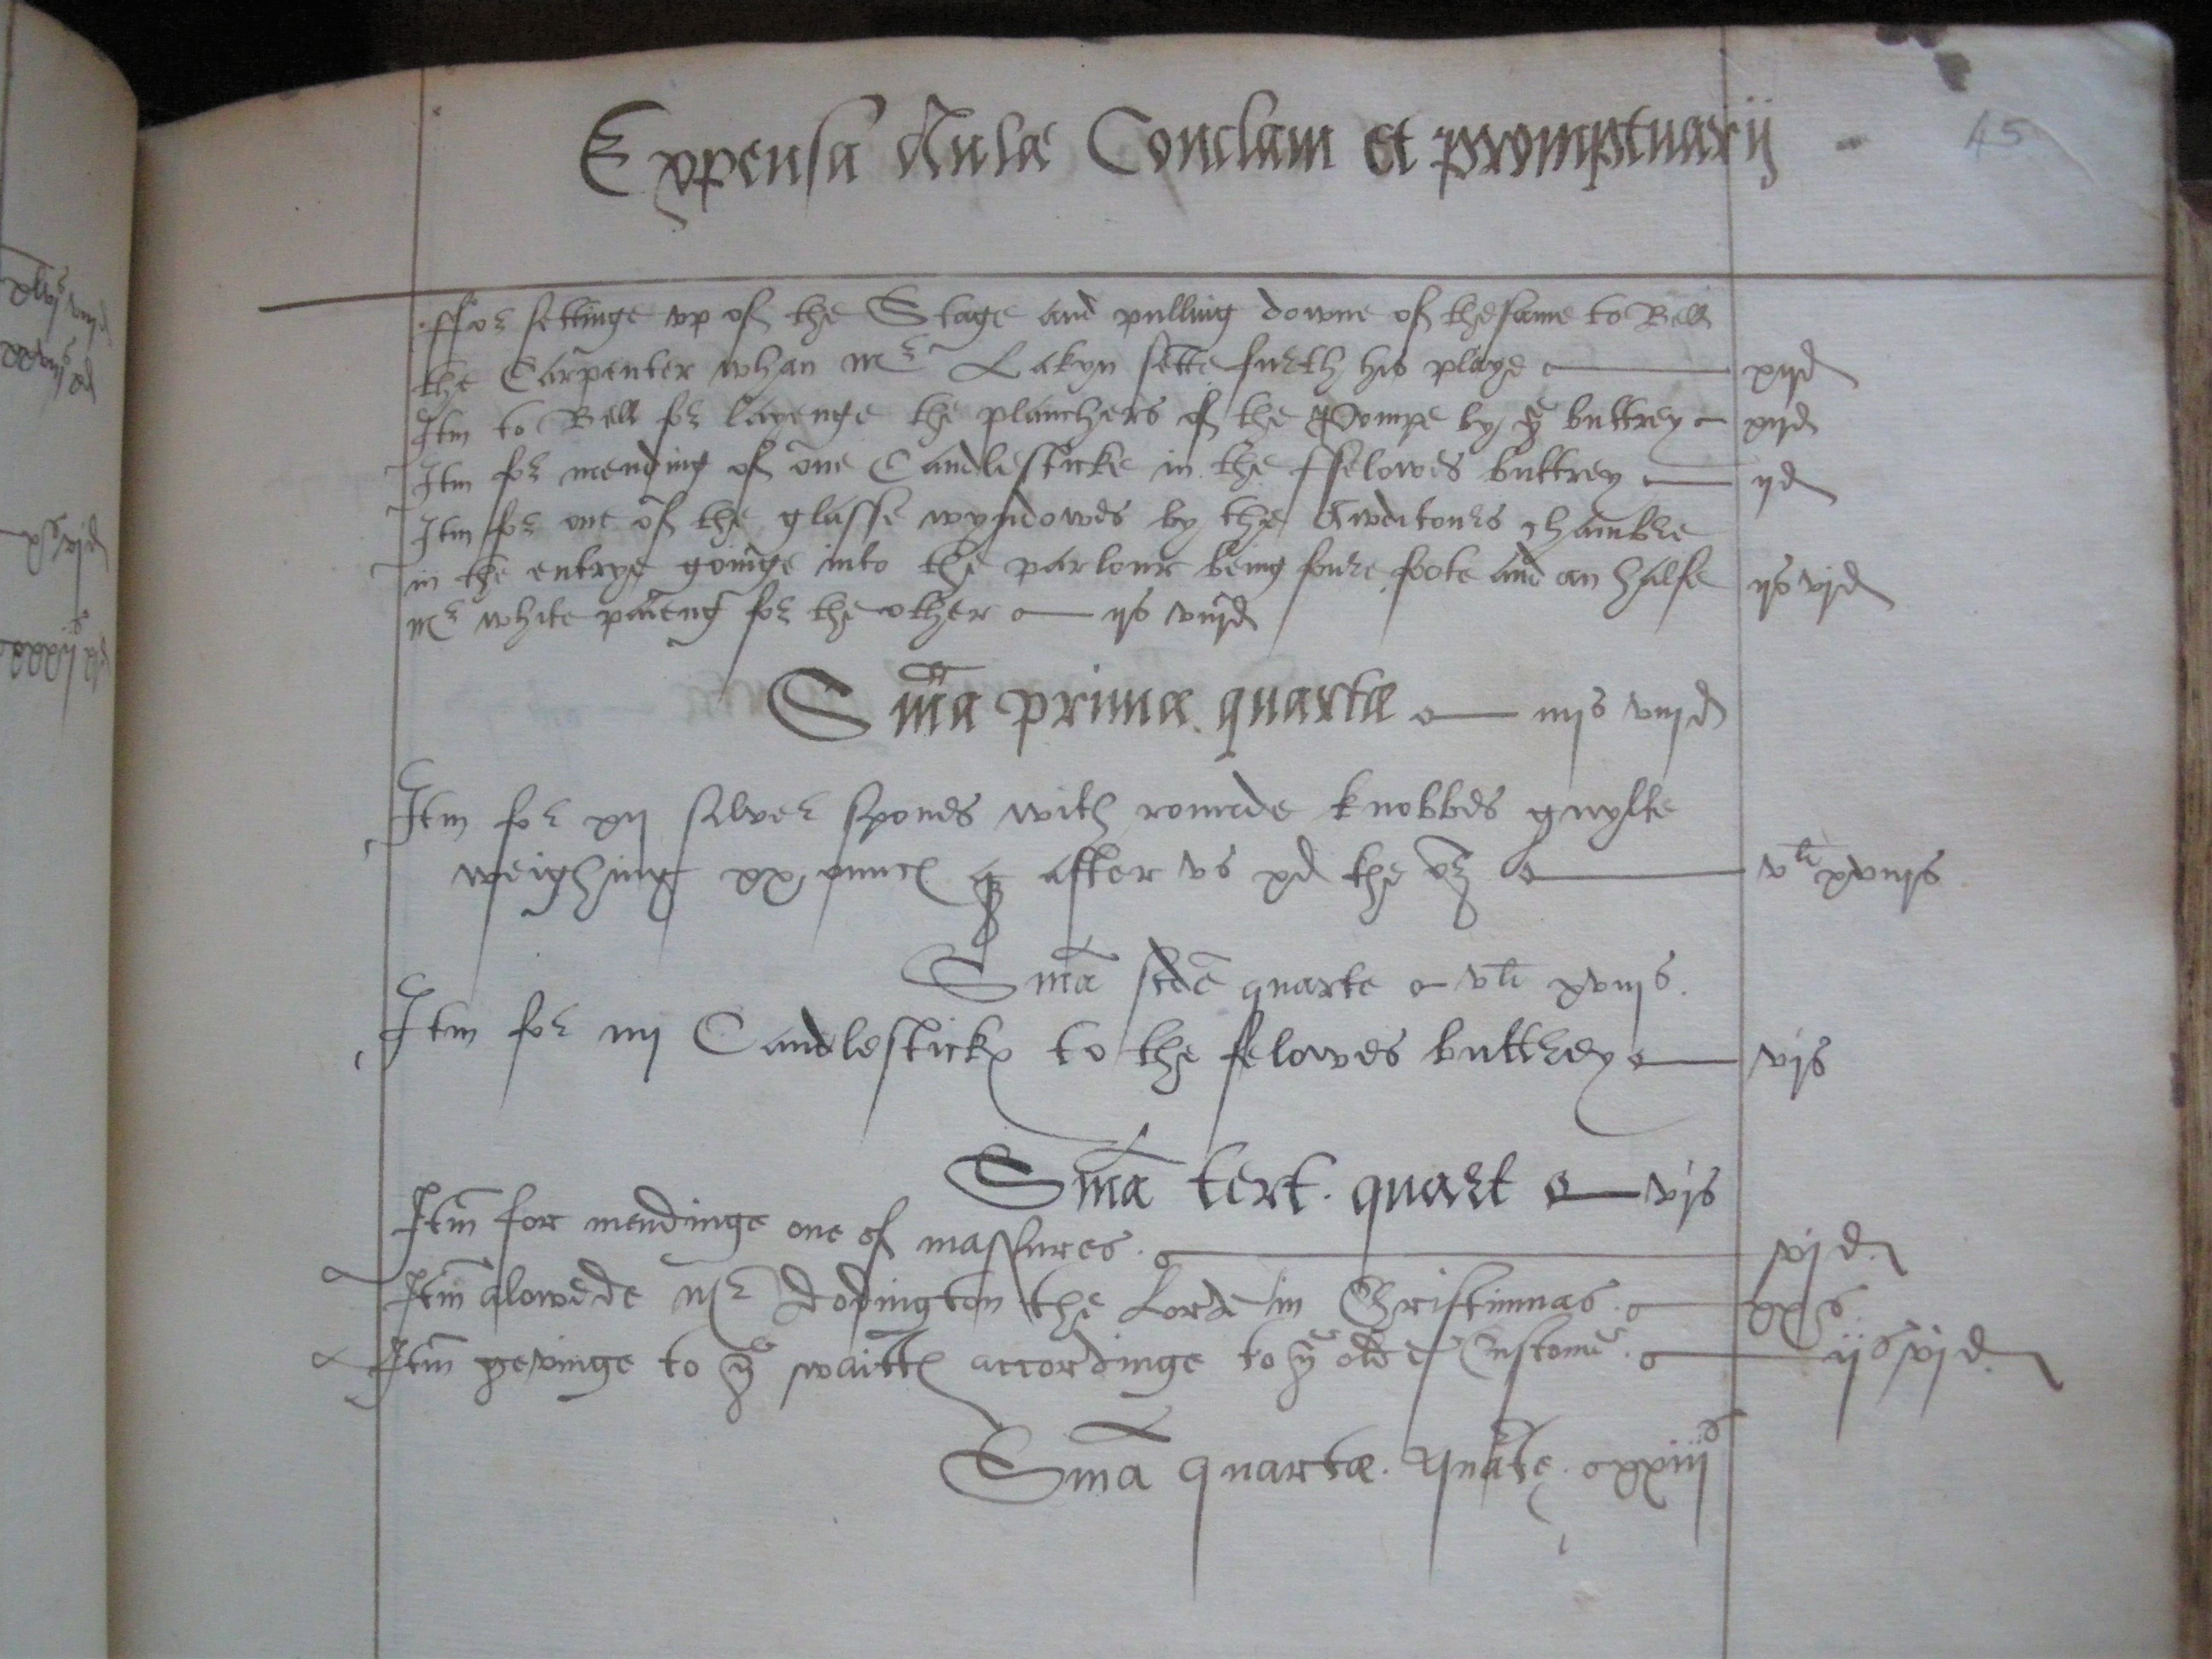 Expensa Aulae Conclauii et promptuarij
45
ffor settinge vp of the Stage and pulling downe of thesame to Bell
the Carpenter whan Mr Lakyn sette furth his playe xijd
Itm to Bell for layenge the planchers of the Pompe by ye buttrey xijd
Itm for mending of one Candlesticke in the ffelowes buttrey ijd
Itm for one of the glasse wyndowes by the Awditours chambre
in the entrye goinge into the parlour being foure foote and an halfe ijs vjd
Mr white paieng for the other ijs viijd
Sma primae quartae iiijs viijd
Itm for xij silver spones with rounde knobbes guylte
weighing xx ounc after vs xd the oz vli xviijs
Sma scde quarte vli xviijs.
Itm for iiij Candlestick to the felowes buttrey vjs
Sma tert. quart vjs
Itm for mendinge one of massures. vjd.
Itm alowede Mr Dodington the Lorde in Christinmas. xxs
Itm gevinge to ye waitt accordinge to ye olde Custome. ijs vjd.
Sma quartae. quate. xxiijs